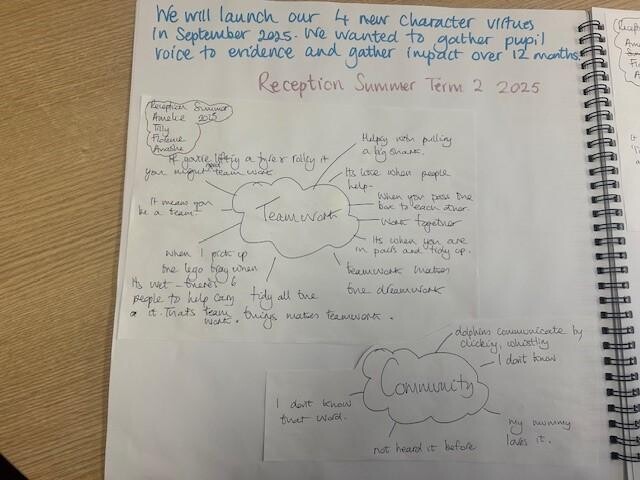 We will launch our 4 new character virtues
in September 2025. We wanted to gather pupil
voice to evidence and gather impact over 12 months.
Reception Summer Term 2 2025
Reception Summer
Amelie 2025
Tilly
Florence
If you're lifting a tyre & rolling it
you might need team work
Helping with pulling
a big shark.
Its like when people
help-
It means you
be a team-
Teamwork
When you pass the
box to each other.
Work together
Its when you are
in pairs and tidy up.
When I pick up
the lego tray when
Its wet - theres 6
people to help carry
it. Thats team
work.
tidy all the
things makes teamwork.
teamwork makes
the dreamwork
dolphins communicate by
clicking, whistling
I don't know
Community
I don't know
that word.
not heard it before
my mummy
loves it.